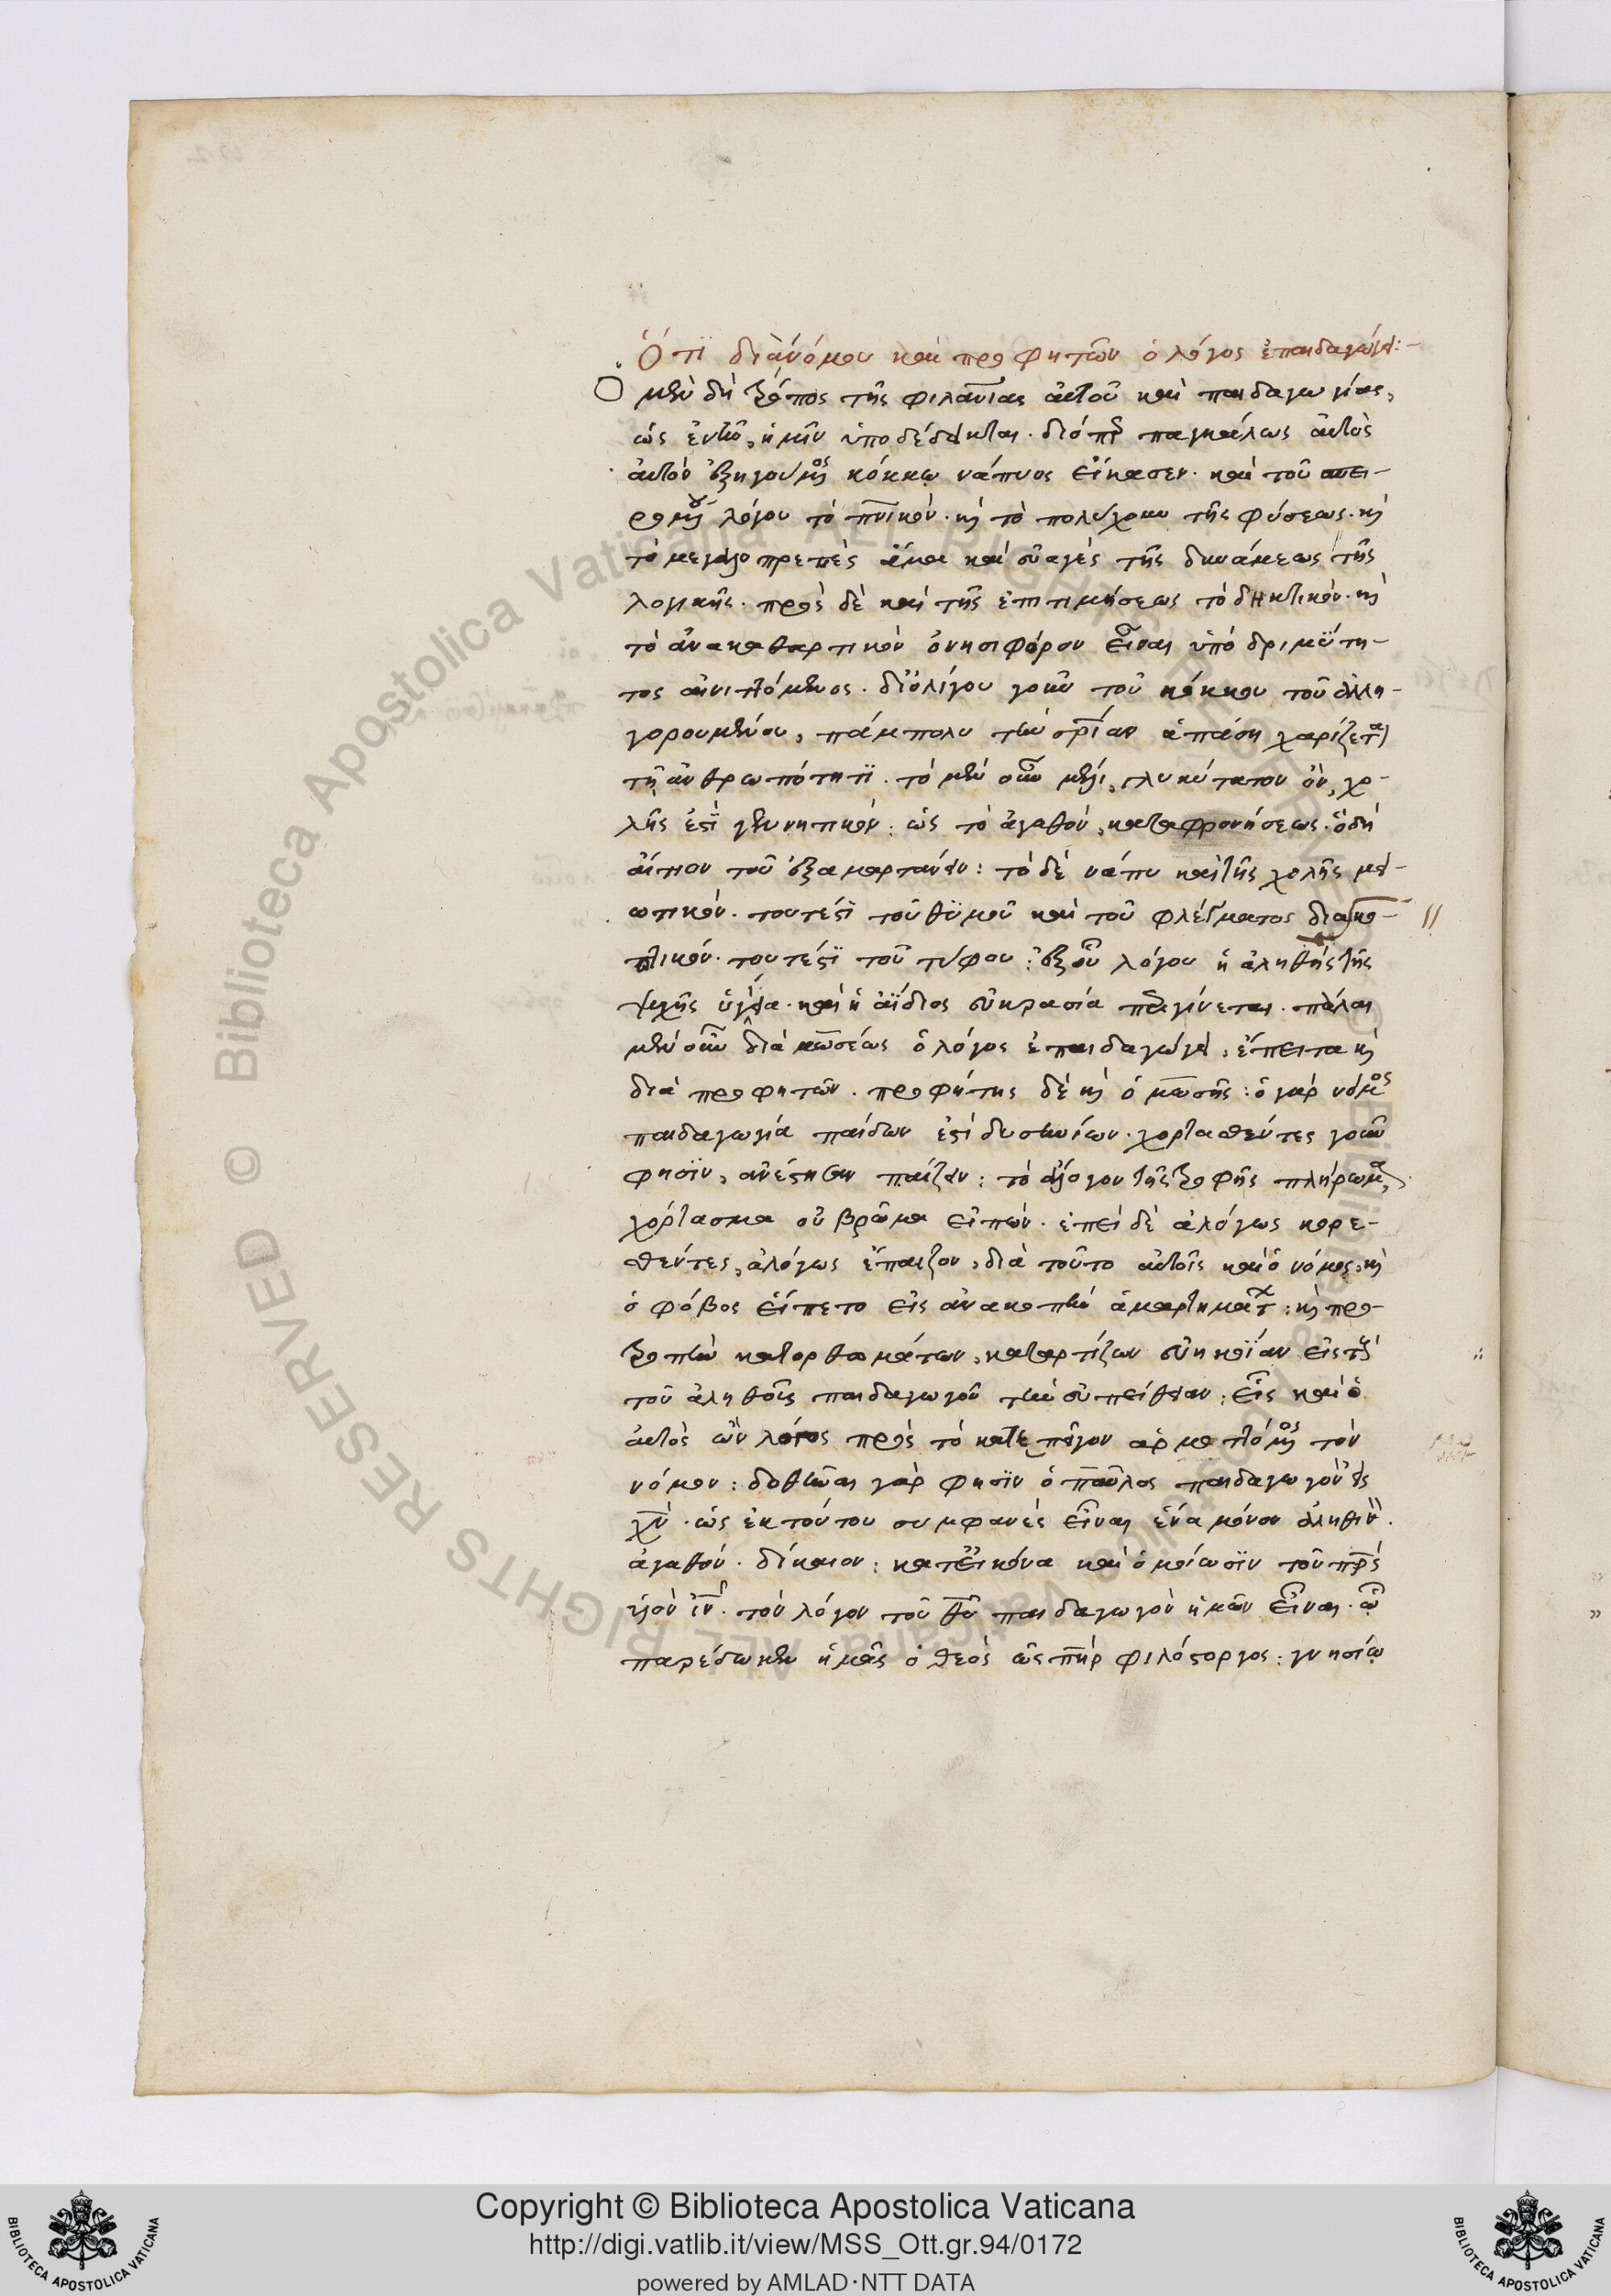 Ὅτι διὰ νόμου καὶ προφητῶν ὁ λόγος ἐπαιδαγώγει:-
Ὁ μὲν δὴ τρόπος τῆς φιλανίας αὐτοῦ καὶ παιδαγωγίας,
ὡς ἐντῶ, ἡμῖν ὑποδέδεικται. διόπερ παγκάλως αὐτὸς
αὐτὸν ἐξηγούμος κόκκω νάπυος εἴκασεν. καὶ τοῦ σπει-
ρομου λόγου τὸ πνικὸν. κὶ τὸ πολύχουν τῆς φύσεως. κὶ
τὸ μεγαλοπρεπὲς ἅμα καὶ εὐαγὲς τῆς δυνάμεως τῆς
λογικῆς. πρὸς δὲ καὶ τῆς ἐπιτιμήσεως τὸ δηκτικὸν. κὶ
τὸ ἀνακαθαρτικὸν ὀνησιφόρον εἶναι ὑπὸ δριμύτη-
τος αἰνιττόμενος. δι' ὀλίγου γοῦν τοῦ κόκκου τοῦ ἀλλη-
γορουμένου, πάμπολυ τὴν σρίαν ἁπάση χαρίζεται
τῆ ἀνθρωπότητι. τὸ μὲν οὖν μέλι, γλυκύτατον ὂν, χο-
λῆς ἐστὶ γεννητικόν: ὡς τὸ ἀγαθόν, καταφρονήσεως. ὃ δὴ
αἴτιον τοῦ ἐξαμαρτάνειν: τὸ δὲ νάπυ καὶ τῆς χολῆς μει-
ωτικόν. τουτέστι τοῦ θυμοῦ καὶ τοῦ φλέγματος διακο-
πτικόν. τουτέστι τοῦ τύφου: ἐξ οὗ λόγου ἡ ἀληθὴς τῆς
ψυχῆς ὑγίεια. καὶ ἡ ἀΐδιος εὐκρασία περιγίνεται. πάλαι
μὲν οὖν διὰ μωσέως ὁ λόγος ἐπαιδαγώγει, ἔπειτα κὶ
διὰ προφητῶν. προφήτης δὲ κὶ ὁ μωσῆς: ὁ γὰρ νόμος
παιδαγωγία παίδων ἐστὶ δυσηνίων. χορτασθέντες γοῦν
φησῒν, ἀνέστησαν παίζειν: τὸ ἄλογον τῆς τροφῆς πλήρωμα,
χόρτασμα οὐ βρῶμα εἰπών. ἐπεὶ δὲ ἀλόγως κορε-
σθέντες, ἀλόγως ἔπαιζον, διὰ τοῦτο αὐτοῖς καὶ ὁ νόμος, κὶ
ὁ φόβος εἵπετο εἰς ἀνακοπὴν ἁμαρτημάτ: κὶ προ-
τροπὴν κατορθωμάτων, καταρτίζων εὐηκοΐαν εἰς τὴν
τοῦ ἀληθοῦς παιδαγωγοῦ τὴν εὐπείθειαν: εἷς καὶ ὁ
αὐτὸς ὢν λόγος πρὸς τὸ κατεπεῖγον ἁρμοττόμος τὸν
νόμον: δοθῆναι γὰρ φησῒν ὁ παῦλος παιδαγωγὸν εἰς
χν. ὡς ἐκ τούτου συμφανὲς εἶναι ἕνα μόνον ἀληθινὸν.
ἀγαθόν. δίκαιον: κατ' εἰκόνα καὶ ὁμοίωσϊν τοῦ πρς
υἱὸν ιν. τὸν λόγον τοῦ θυ παιδαγωγὸν ἡμῶν εἶναι. ὧ
παρέδωκεν ἡμᾶς ὁ θεὸς ὡς πηρ φιλόστοργος: γνησίω
Copyright © Biblioteca Apostolica Vaticana
http://digi.vatlib.it/view/MSS_Ott.gr.94/0172
powered by AMLAD·NTT DATA